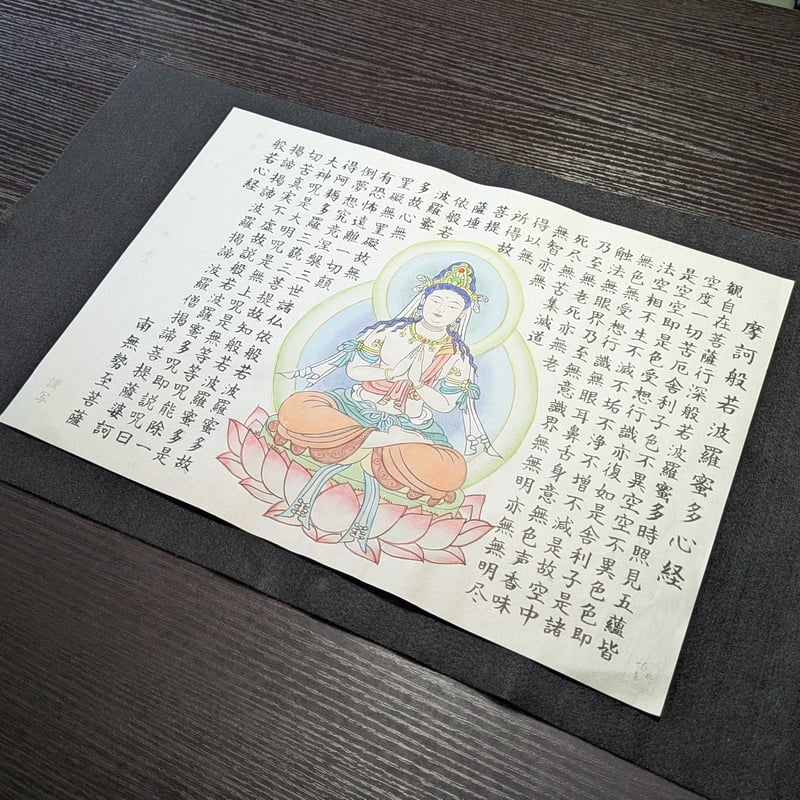 摩訶般若波羅蜜多心経
観自在菩薩行深般若波羅蜜多時照見五蘊皆
空度一切苦厄舎利子色不異空空不異色色即
是空空即是色受想行識亦復如是舎利子是諸
法空相不生不滅不垢不浄不増不減是故空中
無色無受想行識無眼耳鼻舌身意無色声香味
触法無眼界乃至無意識界無無明亦無無明尽
乃至無老死亦無老
死尽無苦集滅道
無智亦無
得以無
所得故
菩提
薩埵
依般若
波羅蜜
多故心無
罣礙無罣礙故無
有恐怖遠離一切顛
倒夢想究竟涅槃三世諸仏依般若波羅蜜多故
得阿耨多羅三藐三菩提故知般若波羅蜜多是
大神呪是大明呪是無上呪是無等等呪能除一
切苦真実不虚故説般若波羅蜜多呪即説呪曰
掲諦掲諦波羅掲諦波羅僧掲諦菩提薩婆訶
般若心経
南無勢至菩薩
謹写